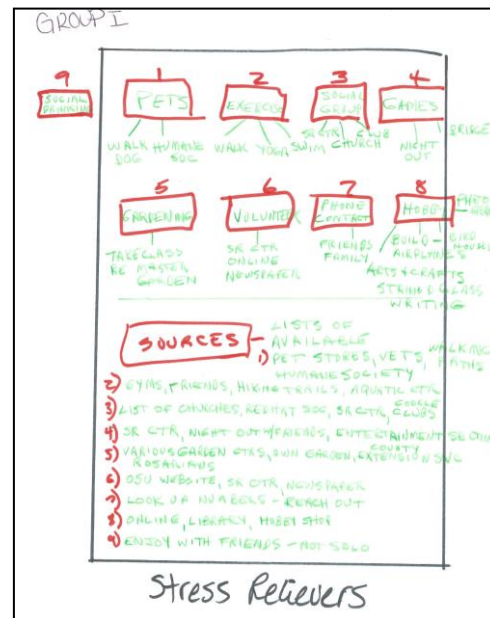 GROUP I
9
SOCIAL
DRINKING
1
PETS
WALK DOG
HUMANE SOC
2
EXERCISE
WALK
YOGA
SWIM
3
SOCIAL
GROUP
SR CTR
CHURCH
CLUB
4
GAMES
NIGHT
OUT
BRIDGE
5
GARDENING
TAKE CLASS
MASTER
GARDEN
6
VOLUNTEER
SR CTR
ONLINE
NEWSPAPER
7
PHONE
CONTACT
FRIENDS
FAMILY
8
HOBBY
BUILD
AIRPLANES
BIRD
ARTS & CRAFTS
STAINED GLASS
WRITING
SOURCES - LISTS OF
AVAILABLE
1) PET STORES, VETS, WALKING PATHS
HUMANE SOCIETY
2) GYMS, FRIENDS, HIKING TRAILS, AQUATIC CTR
3) LIST OF CHURCHES, SR CTR, GOOGLE CLUBS
4) SR CTR, NIGHT OUT W/FRIENDS, ENTERTAINMENT SECTION
5) VARIOUS GARDEN CTRS, OWN GARDEN, COUNTY EXTENSION SVC
ROSARIANS
6) OSU WEBSITE, SR CTR, NEWSPAPER
7) LOOK UP NUMBERS - REACH OUT
8) ONLINE, LIBRARY, HOBBY SHOP
9) ENJOY WITH FRIENDS - NOT SOLO
Stress Relievers